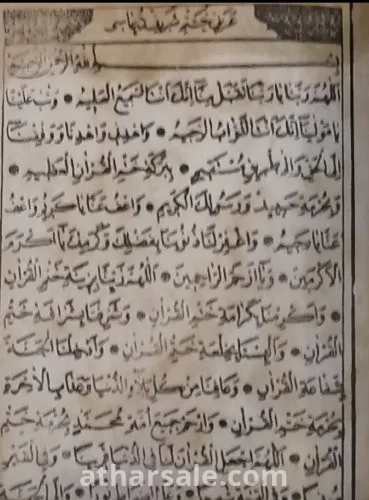 عربی ختم شریف دعاسی
بسم الله الرحمن الرحيم
اللهم ربنا يا ربنا تقبل منا انك انت السميع العليم • وتب علينا
يا مولينا انك انت التواب الرحيم • واهدنا ووفقنا
الى الحق والى طريق مستقيم • ببركة ختم القرآن العظيم •
وبحرمة حبيبك ورسولك الكريم • واعف عنا يا كريم واعف
عنا يا رحيم • واغفر لنا ذنوبنا بفضلك وكرمك يا اكرم
الاكرمين • ويا ارحم الراحمين • اللهم زينا بزينة ختم القرآن
• واكرمنا بكرامة ختم القرآن • وشرفنا بشرافة ختم
القرآن • والبسنا بخلعة ختم القرآن • وادخلنا الجنة
بشفاعة القرآن • وعافنا من كل بلاء الدنيا وعذاب الآخرة
بحرمة ختم القرآن • وارحم جميع امة محمد بحرمة ختم
القرآن • اللهم اجعل القرآن لنا في الدنيا قرينا • وفي القبر
atharsale.com